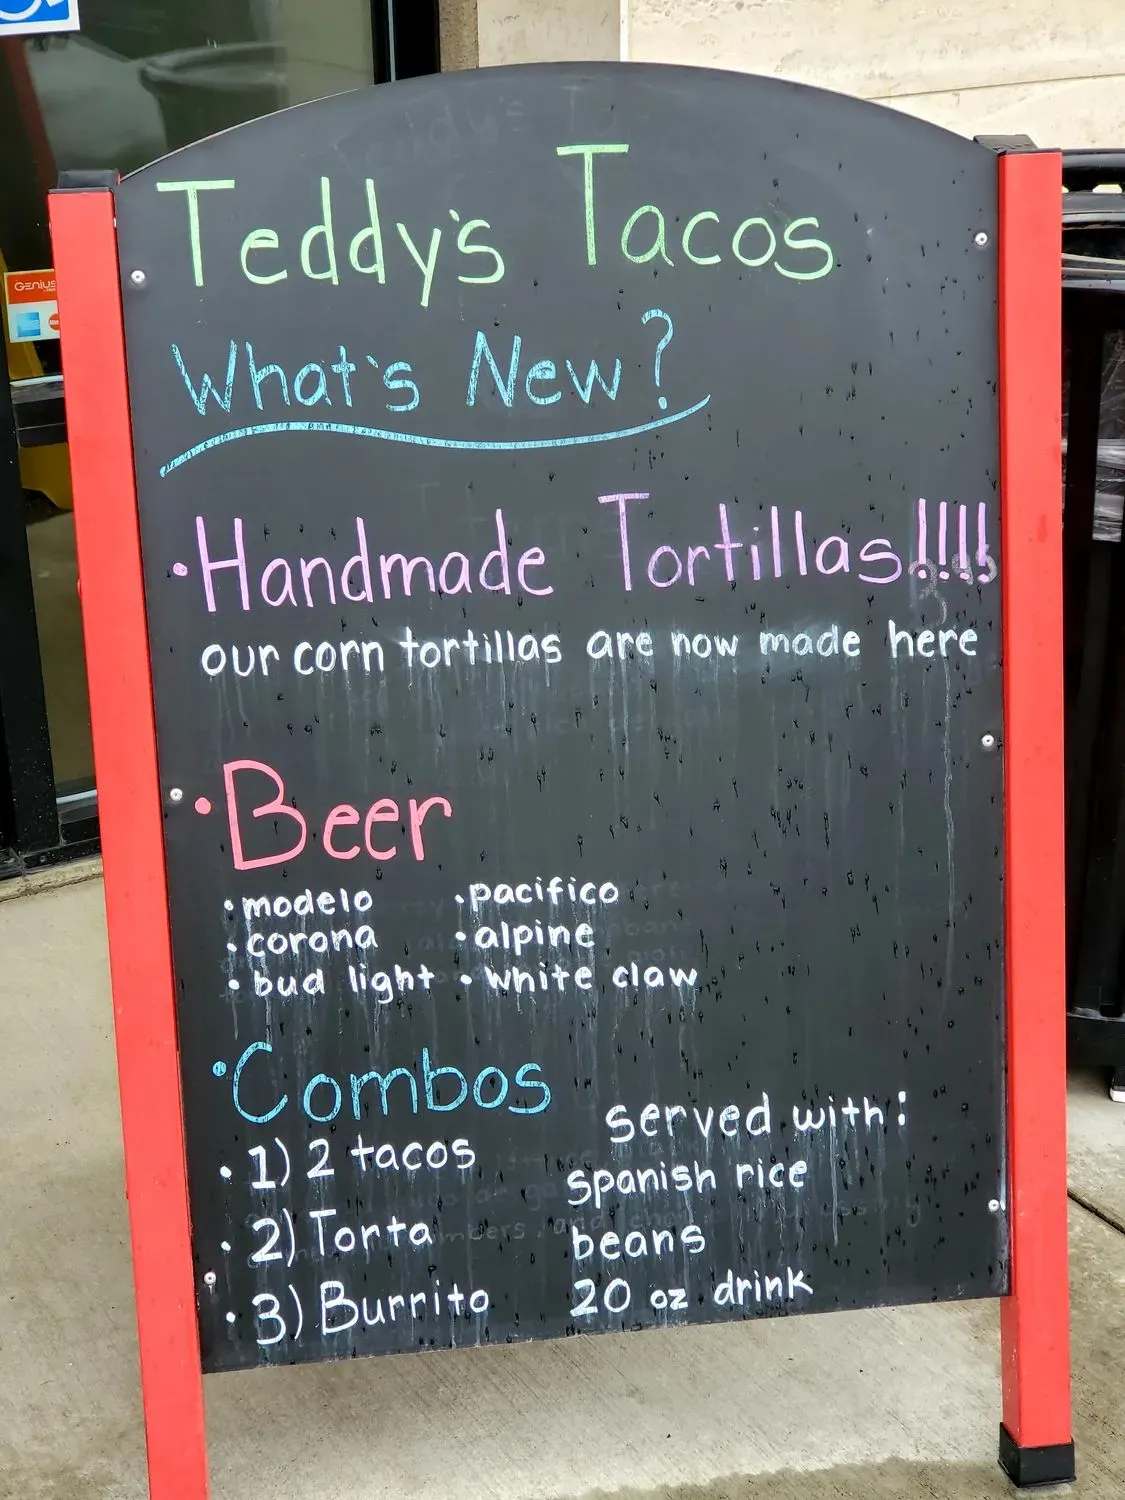 Teddy's Tacos
What's New?
• Handmade Tortillas!!!!
our corn tortillas are now made here
• Beer
• modelo • pacifico
• corona • alpine
• bud light • white claw
• Combos
served with:
• 1) 2 tacos
spanish rice
• 2) Torta
beans
• 3) Burrito
20 oz drink
Genius